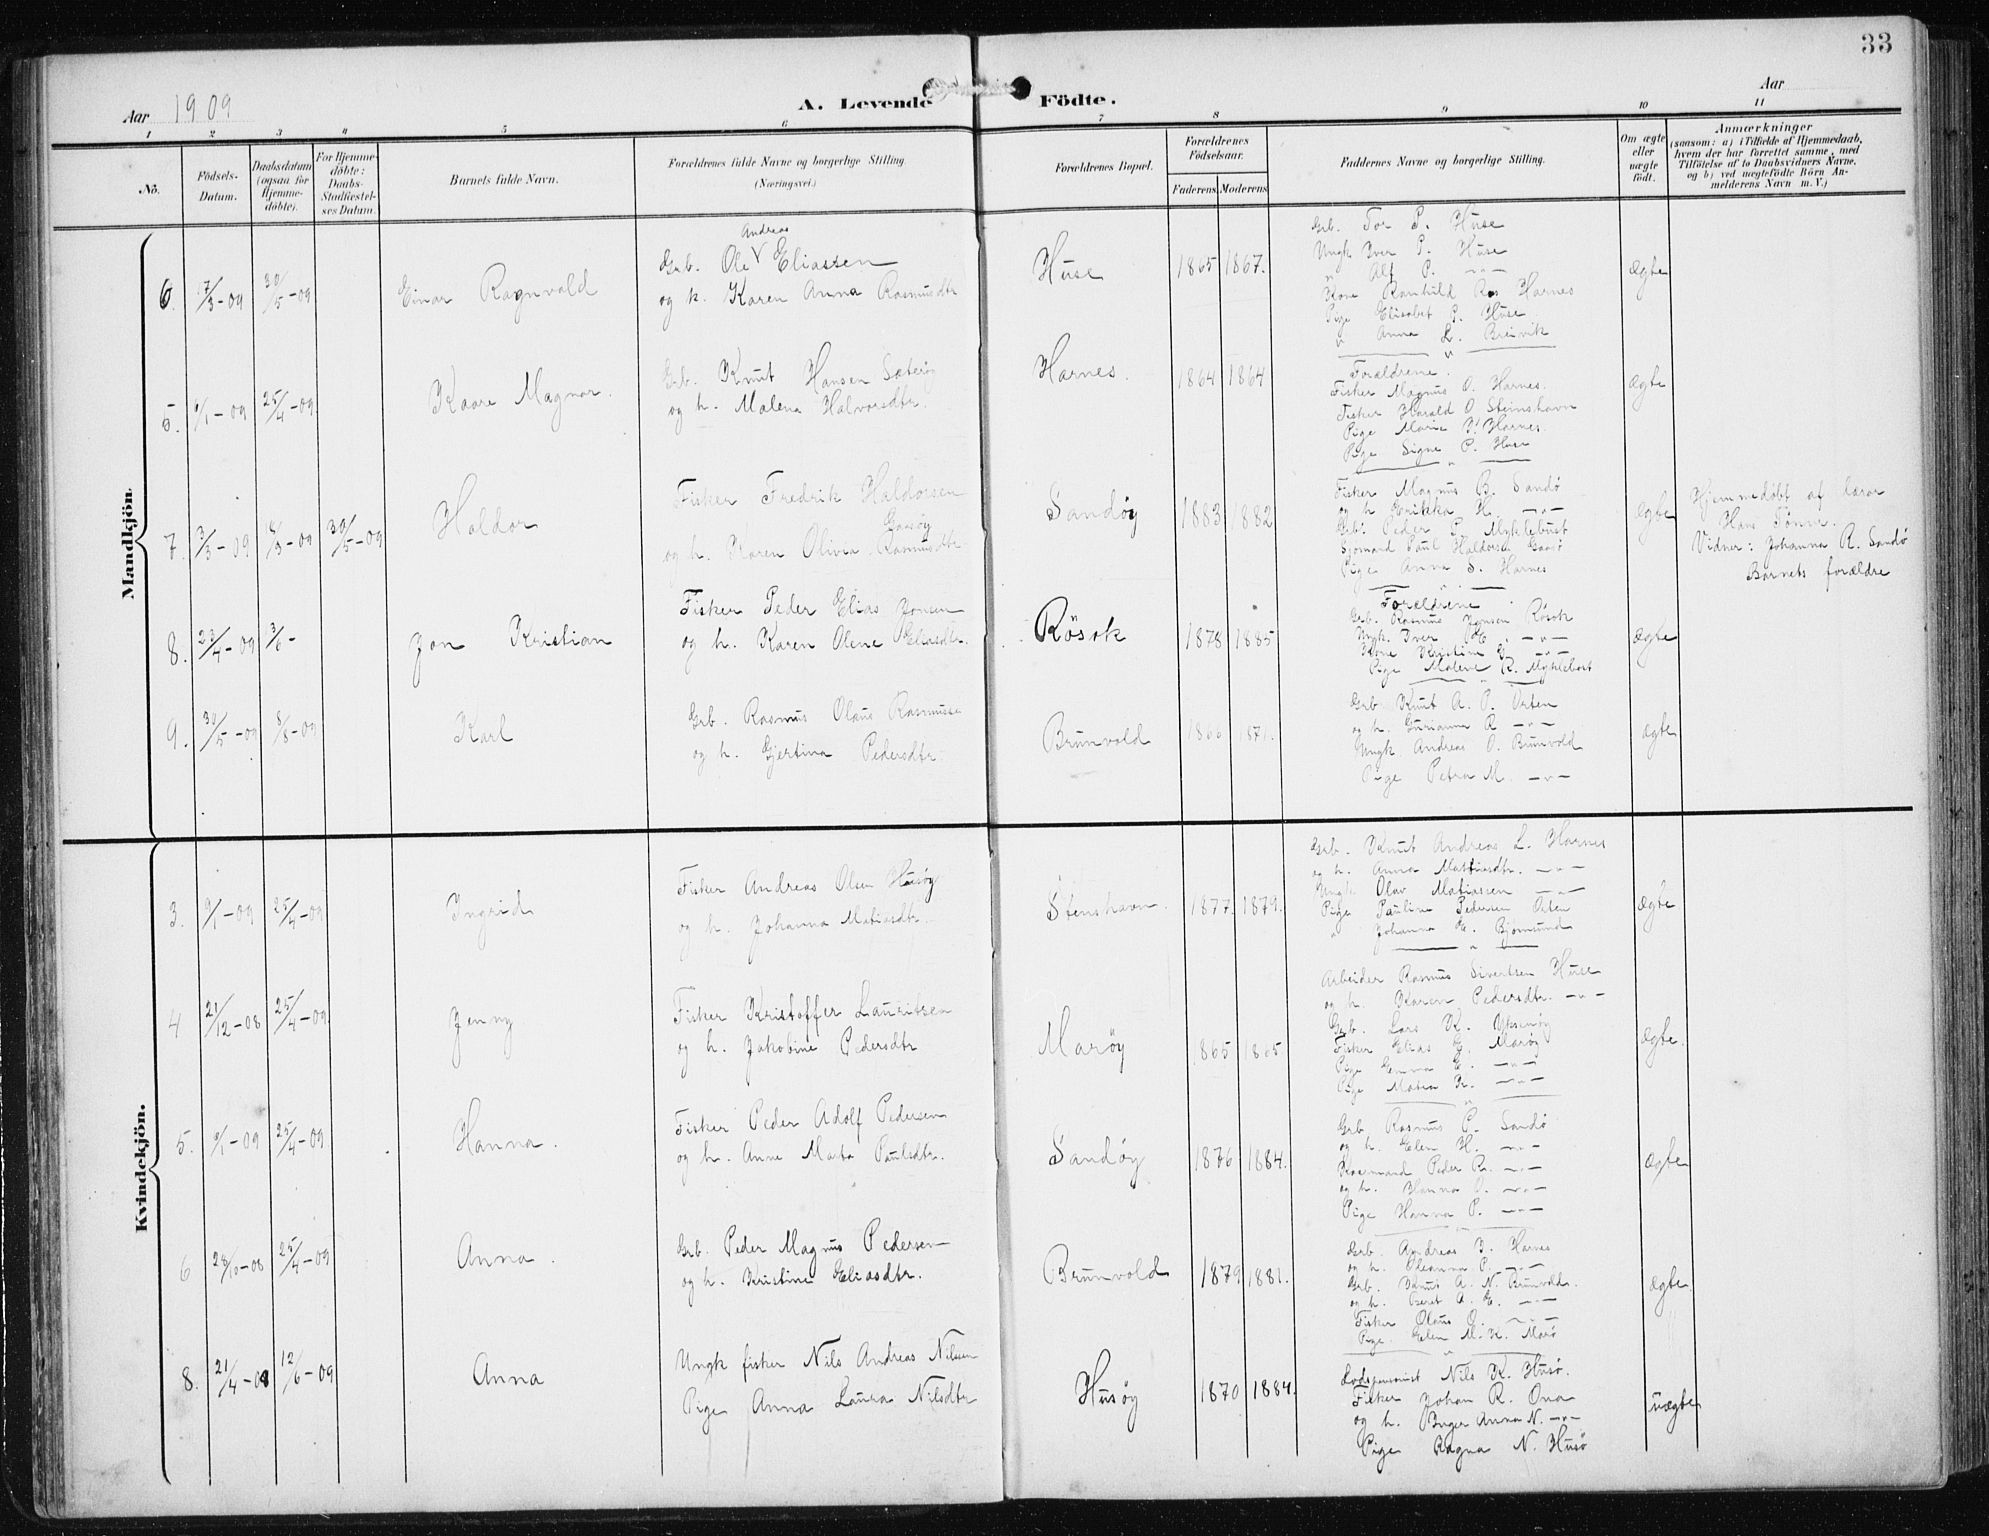 33
Aar 1909
A. Levende Födte.
Aar
1 2 3 4 5 6 7 8 9 10 11
No.
Födsels-Datum.
Daabsdatum (ogsaa for Hjemme-döbte).
For Hjemme-döbte: Daabs-Stadfæstel-ses Datum.
Barnets fulde Navn.
Forældrenes fulde Navne og borgerlige Stilling. (Næringsvei.)
Forældrenes Bopæl.
Forældrenes Födselsaar.
Faderens Moderens
Faddernes Navne og borgerlige Stilling.
Om ægte eller uægte födt.
Anmærkninger (saasom: a) i Tilfælde af Hjemmedaab, hvem der har forrettet samme, med Tilföielse af to Daabsvidners Navne, og b) ved uægtefödte Börn An-melderens Navn m. V.)
Mandkjön.
6. 17/3-09 30/5-09 Einar Ragnvald
Grb. Ole Andreas Eliassen
og h. Karen Anna Rasmusdtr
Huse 1865 1867.
Grb. Tor P. Huse
Ungk Iver P. Huse
" Alf P. -"-
Kone Ranhild Ras Harnes
Pige Elisabet P. Huse
" Anna L. Breivik
ægte
5. 25/4-09 Kaare Magnar.
Grb. Knut Hansen Sæterøy
og h. Malena Halvorsdtr.
Harnes. 1864 1864
Forældrene.
Fisker Magnus O. Harnes.
Fisker Harald O Steinshavn
Pige Marie K Harnes.
Pige Signe P. Huse
ægte
7. 3/3-09 8/3-09 30/5-09 Haldor
Fisker Fredrik Haldorsen Gaasøy
og h. Karen Olivia Rasmusdtr
Sandøy 1883 1882
Fisker Magnus B. Sandö
og h Erikka H. -"-
Grb. Peder P. Myklebust
Sjömand Paul Haldorsen Gaasö
Pige Anna S. Harnes
ægte
Hjemmedöbt af lærer
Hans Tönne.
Vidner: Johanna R. Sandö
Barnets forældre
8. 23/4-09 3/6- Jon Kristian
Fisker Peder Elias Jonsen
og h. Karen Olene Eliasdtr.
Rösok 1878 1885
Forældrene
Grb. Rasmus Jonsen Rösok
Ungk. Iver E. -"-
Kone Kristine E -"-
Pige Malene R. Myklebost
ægte
9. 30/5-09 8/8-09 Karl
Grb. Rasmus Olaus Rasmussen
og h. Gjertina Pedersdtr.
Brunvold 1866 1871.
Grb Knut A. P. Orten
og h. Gurianna R -"-
Ungk. Andreas O. Brunvold
Pige Petra M. -"-
ægte
Kvindekjön.
3. 9/1-09 25/4-09 Ingrid
Fisker Andreas Olsen Husøy
og h. Johanna Matiasdtr.
Stenshavn. 1877. 1879.
Grb. Knut Andreas L. Harnes
og h. Anna Mattiasdtr. -"-
Ungk Olav Matiassen -"-
Pige Pauline Pedersen Orten
" Johanna E. Bjørnund
ægte
4 21/12-08 25/4-09. Jenny
Fisker Kristoffer Lauritsen
og h. Jakobine Pedersdtr
Marøy 1865 1865
Arbeider Rasmus Sivertsen Huse
og h. Karen Pedersdtr. -"-
Grb. Lars K. Uksenøy
Fisker Elias E. Marøy
Pige Emma E. -"-
Pige Matea K. -"-
ægte.
5. 25/4-09 Hanna.
Fisker Peder Adolf Pedersen
og h. Anne Marta Paulsdtr.
Sandøy 1876 1884.
Grb Rasmus P. Sandö
og h. Elen H. -"-
Peder R. -"-
og h. Hanna O. -"-
Pige Hanna P. -"-
ægte
6 28/10-08 25/4-09 Anna.
Grb. Peder Magnus Pedersen
og h. Kristine Eliasdtr.
Brunvold 1879 1881.
Grb. Andreas J. Harnes
og h. Oleanna P. -"-
Grb. Knut A. N. Brunvold.
og h. Beret A. E. -"-
Fisker Olaus O. -"-
Pige. Elen M. K. Marö
ægte
8. 21/4-08 12/6-09 Anna
Ungk fisker Nils Andreas Nilsen
Pige Anna Laura Nilsdtr
Husøy 1870 1884.
Lodspensionist Nils K. Husö.
Fisker Johan R. Ona
og h. Inger Anna N. -"-
Pige Ragna N. Husö
uægte